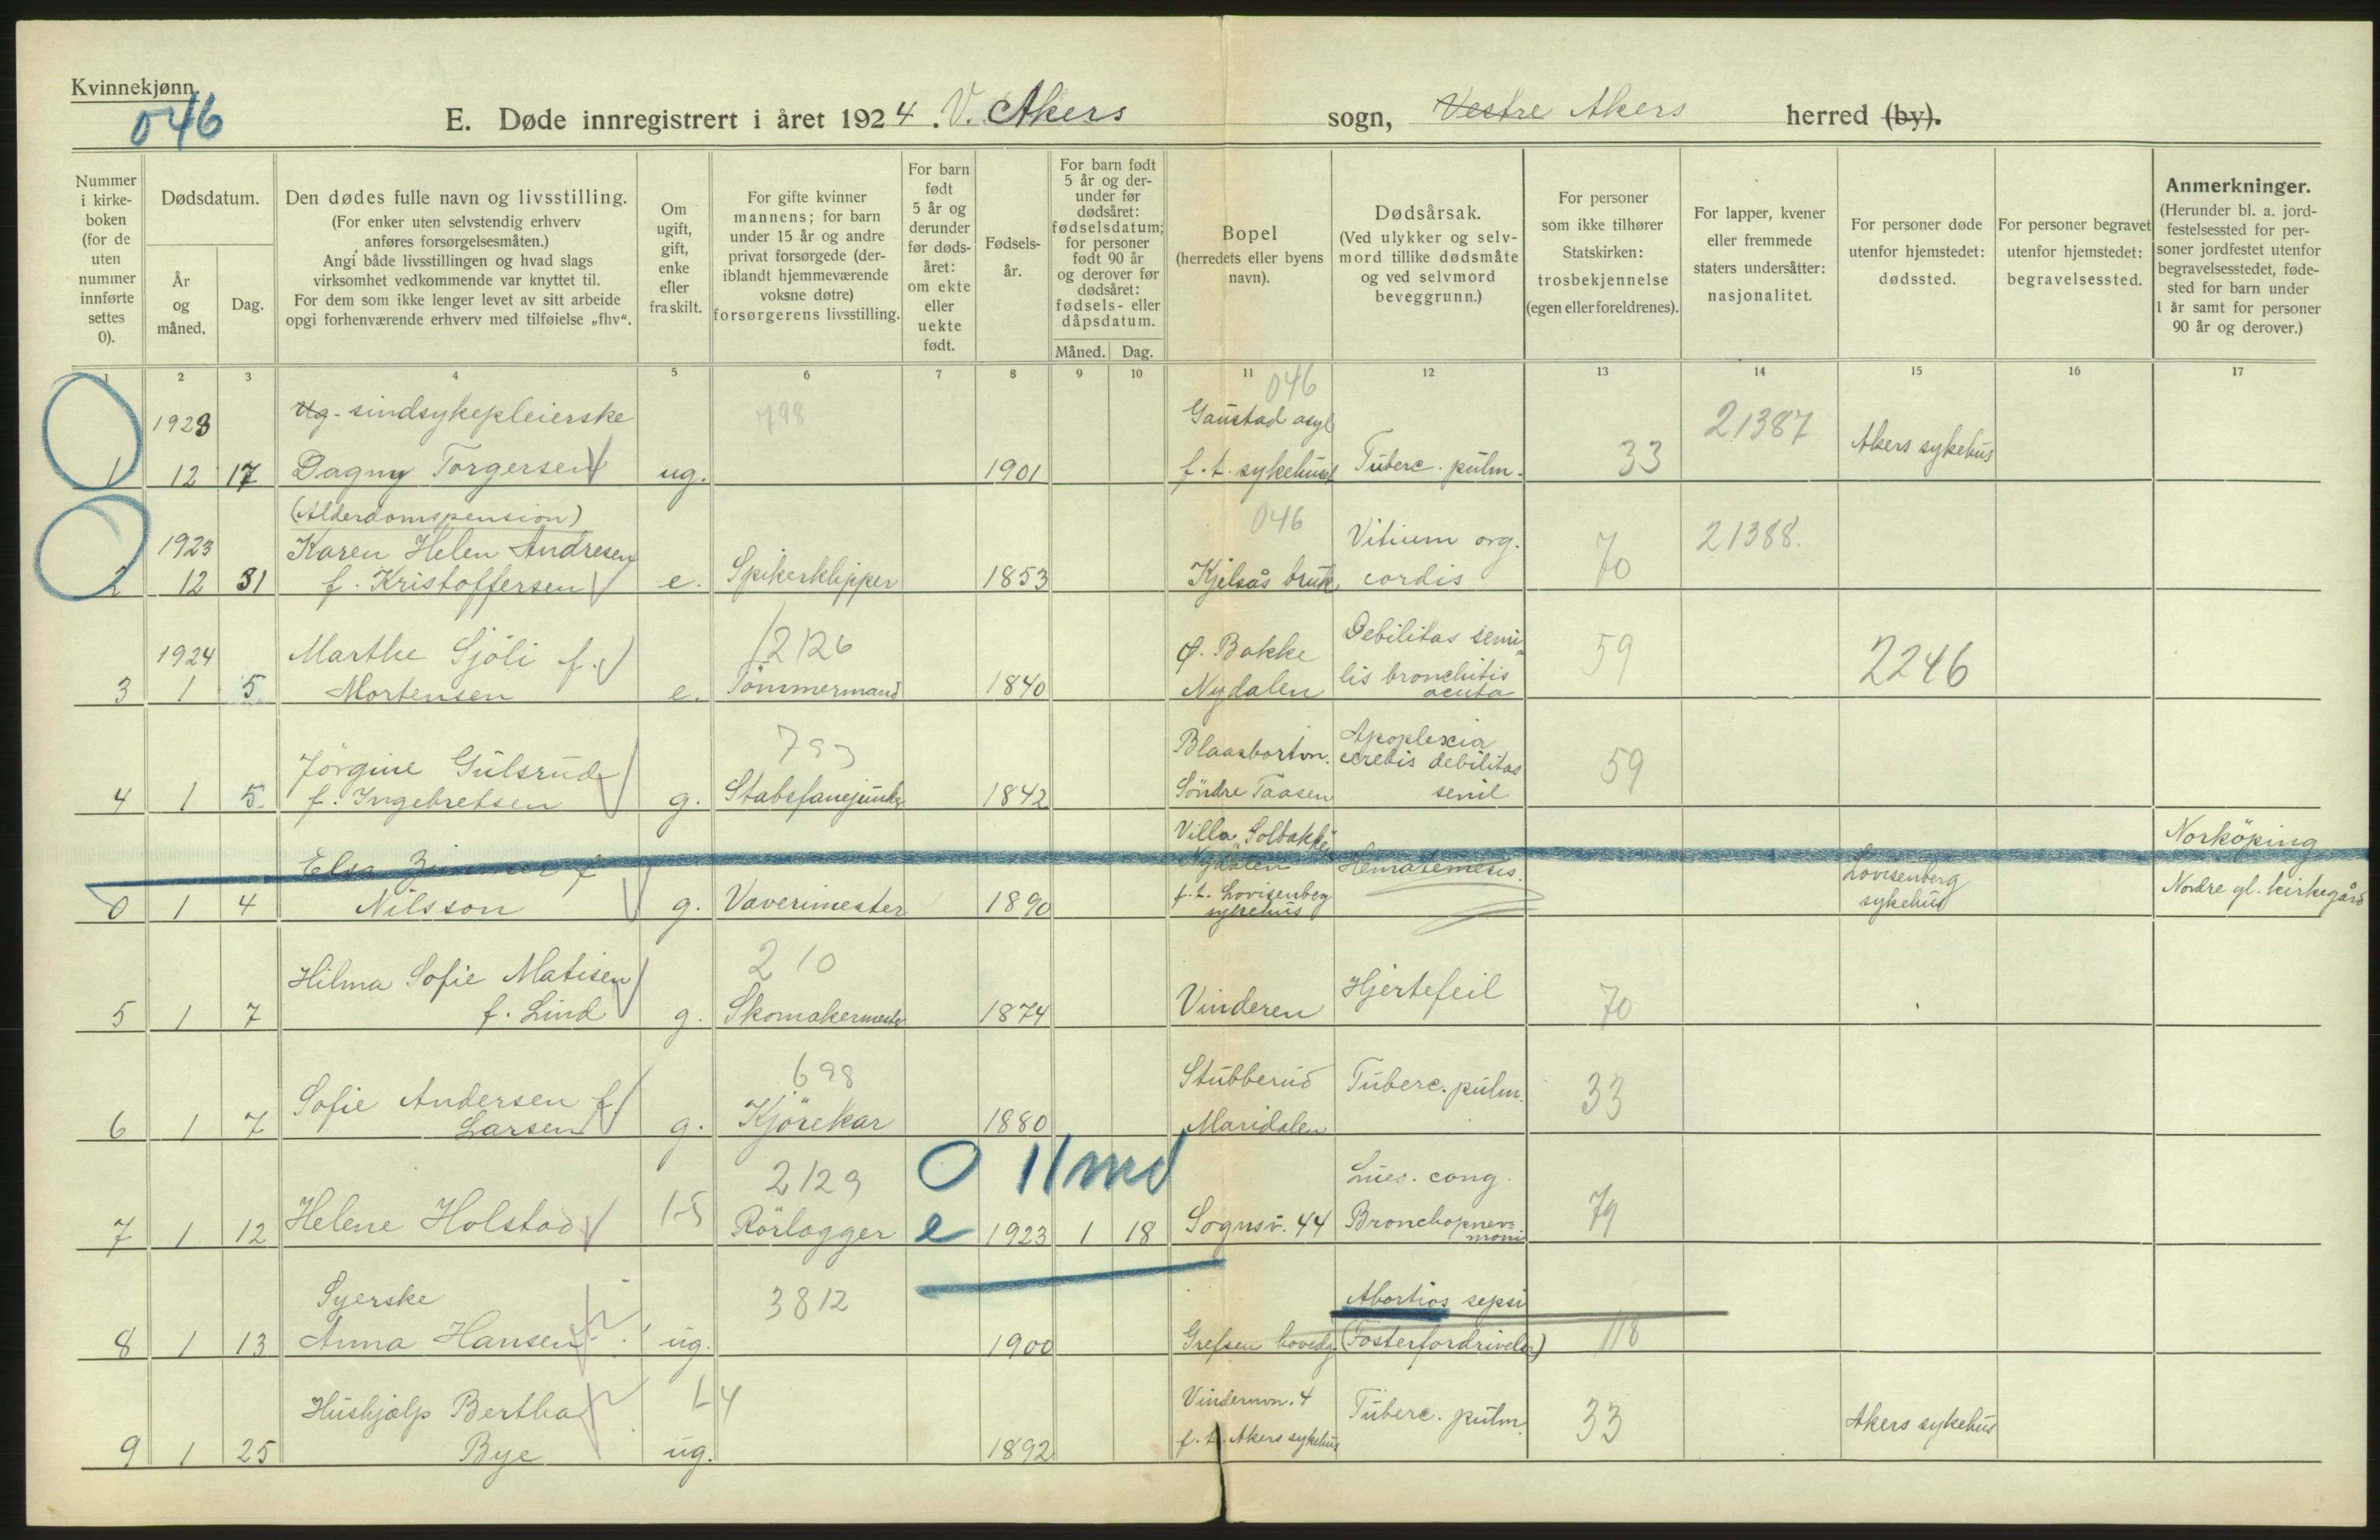 Kvinnekjønn.
046
E. Døde innregistrert i året 1924. V. Akers sogn, Vestre Akers herred (by).
Nummer i kirke- boken (for de uten nummer innførte settes 0).
Dødsdatum.
År og måned.
Dag.
Den dødes fulle navn og livsstilling.
(For enker uten selvstendig erhverv anføres forsørgelsesmåten.)
Angi både livsstillingen og hvad slags virksomhet vedkommende var knyttet til.
For dem som ikke lenger levet av sitt arbeide opgi forhenværende erhverv med tilføielse „fhv“.
Om ugift, gift, enke eller fraskilt.
For gifte kvinner mannens; for barn under 15 år og andre privat forsørgede (der- iblandt hjemmeværende voksne døtre) forsørgerens livsstilling.
For barn født 5 år og derunder før døds- året: om ekte eller uekte født.
Fødsels- år.
For barn født 5 år og der- under før dødsåret: fødselsdatum; for personer født 90 år og derover før dødsåret: fødsels- eller dåpsdatum.
Måned. Dag.
Bopel (herredets eller byens navn).
Dødsårsak.
(Ved ulykker og selv- mord tillike dødsmåte og ved selvmord beveggrunn.)
For personer som ikke tilhører Statskirken: trosbekjennelse (egen eller foreldrenes).
For lapper, kvener eller fremmede staters undersåtter: nasjonalitet.
For personer døde utenfor hjemstedet: dødssted.
For personer begravet utenfor hjemstedet: begravelsessted.
Anmerkninger.
(Herunder bl. a. jord- festelsessted for per- soner jordfestet utenfor begravelsesstedet, føde- sted for barn under 1 år samt for personer 90 år og derover.)
1 2 3 4 5 6 7 8 9 10 11 12 13 14 15 16 17
046
1923 Ug. sindsykepleierske 798 Gaustad asyl 21387 Akers sykehus
1 12 17 Dagny Torgersen ug. 1901 f. t. sykehuset Tuberc. pulm. 33
(Alderdomspension) 046
1923 Karen Helen Andresen Vitium org. 21388.
2 12 31 f. Kristoffersen e. Spikerklipper 1853 Kjelsås bruk cordis 70
1924 Marthe Sjöli f. 2126 Ø. Bakke Debilitas seni- 59 2246
3 1 5 Mortensen e. Tömmermand 1840 Nydalen lis bronchitis acuta
Jörgine Gulsrud 793 Blaasbortvn. Apoplexia cerebis debilitas 59
4 1 5 f. Ingebretsen g. Stabsfanejunker 1842 Söndre Taasen senil
Elsa Zimmer f. Villa „Solbakken“ Nydalen Hematemesis. Lovisenberg sykehus Norköping
0 1 4 Nilsson g. Vaverimester 1890 f. t. Lovisenberg sykehus Nordre gl. kirkegård
Hilma Sofie Matisen 210 Hjertefeil
5 1 7 f. Lind g. Skomakermester 1874 Vinderen 70
Sofie Andersen f. 698 Stubberud Tuberc. pulm. 33
6 1 7 Larsen g. Kjörekar 1880 Maridalen
2129 0 11 md Lues. cong.
7 1 12 Helene Holstad 1-5 Rörlægger e 1923 1 18 Sognsv. 44 Bronchopnev- moni 79
Syerske 3812 Abortios sepsi
8 1 13 Anna Hansen ug. 1900 Grefsen hovedg. (Fosterfordrivelse) 118
Hushjælp Bertha L4 Vindernvn. 4 Tuberc. pulm. 33 Akers sykehus
9 1 25 Bye ug. 1892 f. t. Akers sykehus